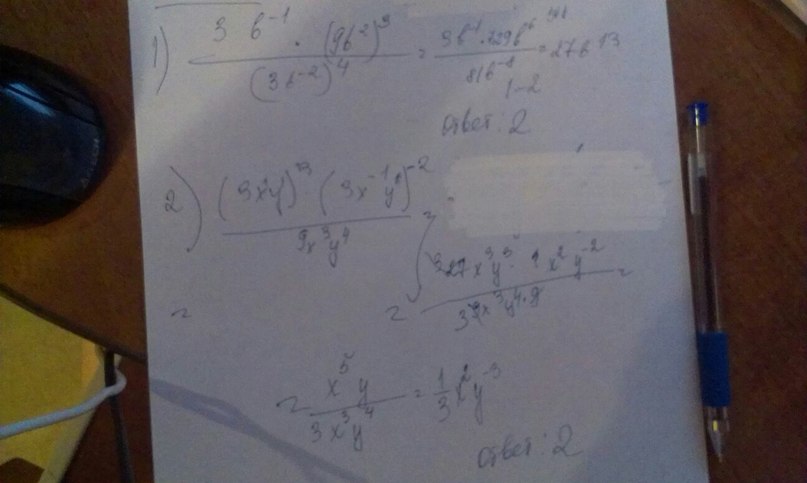 1) 3 b⁻¹ · (9b²)³ / (3b⁻²)⁴ = 3b⁻¹ · 729b⁶ / 81b⁻⁸ = 27b¹³
1-2
ответ: 2
2) (3xy)³ (3x⁻¹y)⁻² / 9x³y⁴ =
= 27x³y³ · 1 x²y⁻² / 9x³y⁴ · 9 =
= x⁵y / 3x³y⁴ = 1/3 x²y⁻³
ответ: 2